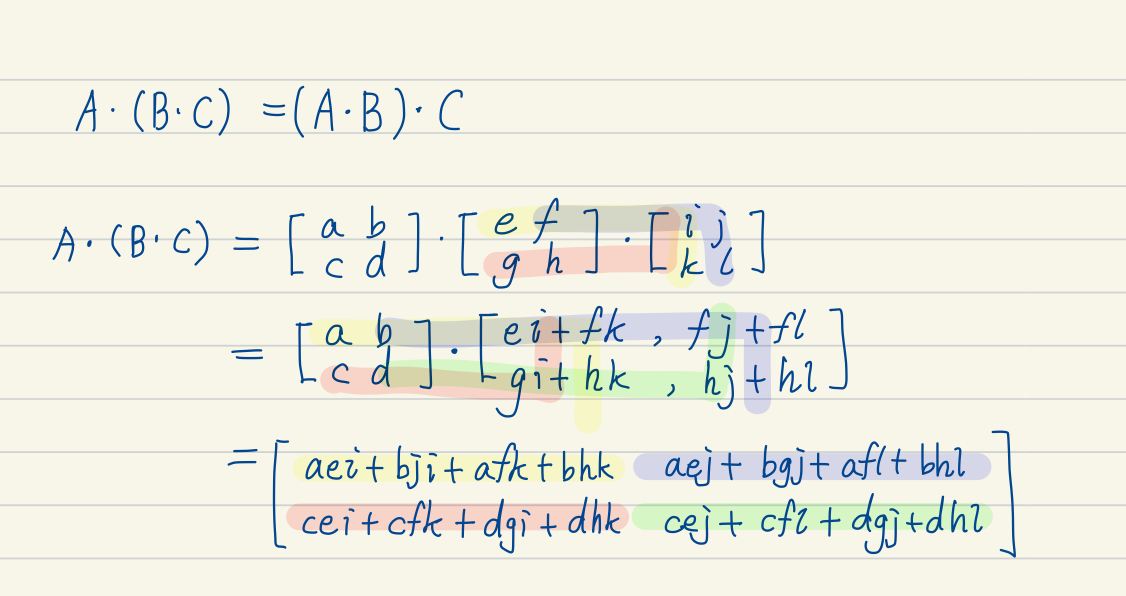 A·(B·C) =(A·B)·C
A·(B·C) = [a b] · [e f] · [i j]
[c d] [g h] [k l]
= [a b] · [ei+fk , fj+fl]
[c d] [gi+hk , hj+hl]
= [aei+bji+afk+bhk aej+ bgj+afl+bhl]
[cei+cfk+dgi+dhk cej+ cfl+dgj+dhl]